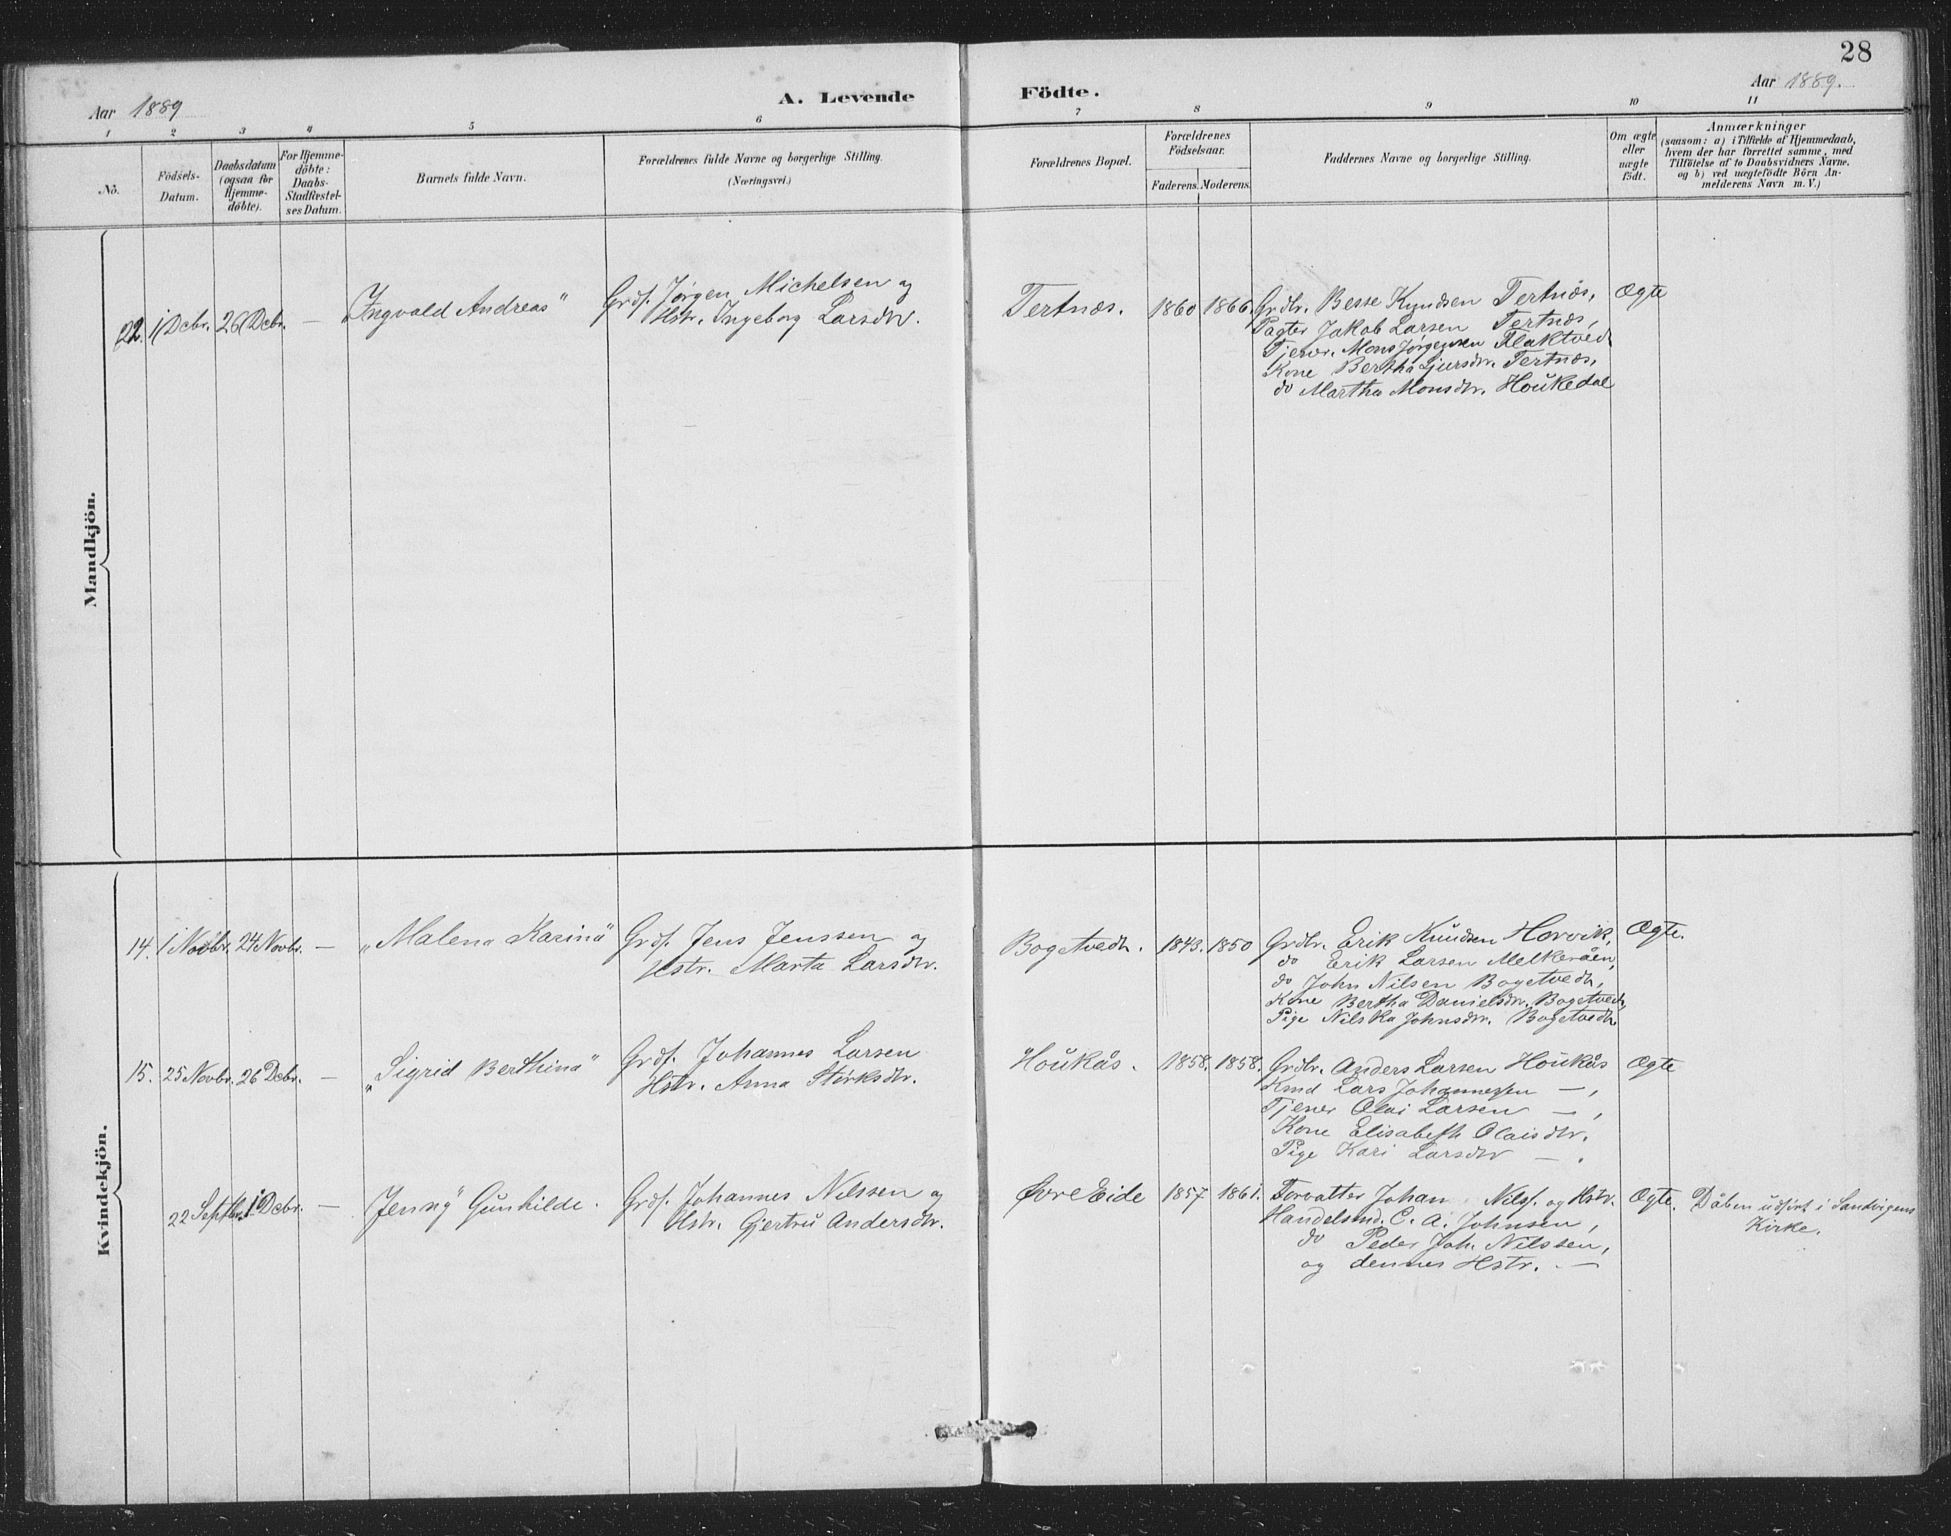 28
Aar 1889
A. Levende
Födte.
Aar 1889.
1 2 3 4 5 6 7 8 9 10 11
No.
Födsels-
Datum.
Daabsdatum
(ogsaa for
Hjemme-
döbte).
For Hjemme-
döbte:
Daabs-
Stadfæstel-
ses Datum.
Barnets fulde Navn.
Forældrenes fulde Navne og borgerlige Stilling.
(Næringsvei.)
Forældrenes Bopæl.
Forældrenes
Födselsaar.
Faderens. Moderens.
Faddernes Navne og borgerlige Stilling.
Om ægte
eller
uægte
födt.
Anmærkninger
(saasom: a) i Tilfælde af Hjemmedaab,
hvem der har forrettet samme, med
Tilföielse af to Daabsvidners Navne.
og b) ved uægtefödte Börn An-
melderens Navn m. V.)
Mandkjön.
22. 1 Dcbr. 26 Dcbr. — Ingvald Andreas"
Grdf. Jørgen Michelsen og
Hstr. Ingeborg Larsdtr.
Tertnæs. 1860 1866
Grdbr. Besse Knudsen Tertnæs,
Pagter Jakob Larsen Tertnæs,
Tjener. Mons Jørgensen Flaktvedt
Kone Bertha Sjursdtr. Tertnæs,
do Martha Monsdtr. Houkedal
Ægte
Kvindekjön.
14. 1 Novbr. 24 Novbr. — "Malena Karina"
Grdf. Jens Jenssen og
Hstr. Marta Larsdtr.
Bogetvedt. 1843. 1850
Grdbr. Erik Knudsen Horvik,
do Erik Larsen Melkeråen,
do John Nilsen Bogetvedt,
Kone Bertha Danielsdtr. Bogetvedt,
Pige Nilska Johnsdtr. Bogetvedt
Ægte.
15. 25 Novbr. 26 Dcbr. — "Sigrid Berthina"
Grdf. Johannes Larsen
Hstr. Anna Størksdtr.
Houkås. 1858. 1858.
Grdbr. Anders Larsen Houkås
Kmd Lars Johannessen — ,
Tjener Olai Larsen — ,
Kone Elisabeth Olaisdtr.
Pige Kari Larsdtr — .
Ægte
22 Septbr. 1 Dcbr. — Jenny" Gunhilde.
Grdf. Johannes Nilssen og
Hstr. Gjertru Andersdtr.
Øvre Eide 1857 1861.
Forvalter Johan Nilss. og Hstr.
Handelsmd. C. A. Johnsen,
do Peder Joh. Nilssen,
og dennes Hstr. —
Ægte.
Dåben udført i Sandvigens
Kirke.